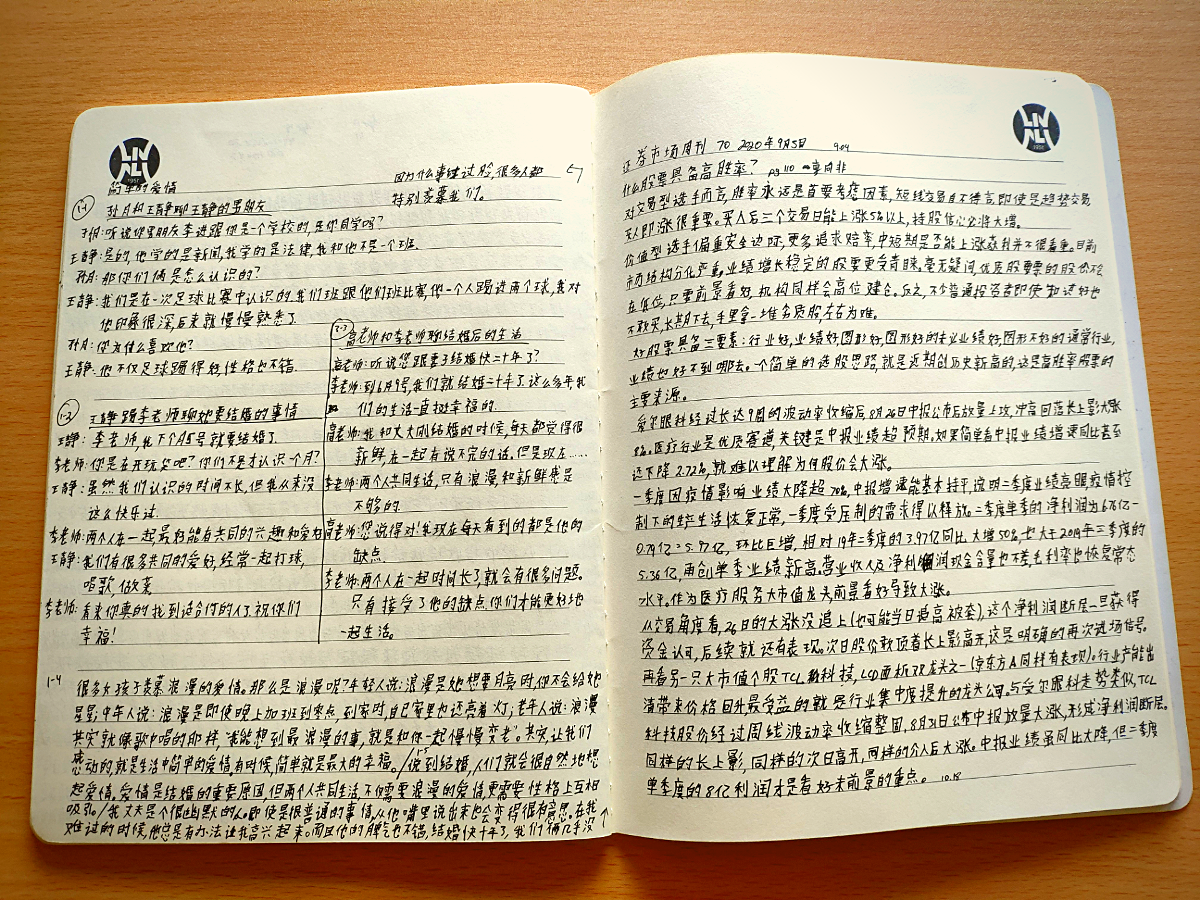 LIN
ALI
1951
简单的爱情
因为什么事红过脸,很多人都
特别羡慕我们。
1-1
孙月和王静聊王静的男朋友
孙月:听说你男朋友李进跟你是一个学校的,是你同学吗?
王静:是的,他学的是新闻,我学的是法律,我和他不是一个班.
孙月:那你们俩是怎么认识的?
王静:我们是在一次足球比赛中认识的.我们班跟他们班比赛,他一个人踢进两个球,我对
他印象很深,后来就慢慢熟悉了.
孙月:你为什么喜欢他?
王静:他不仅足球踢得好,性格也不错.
1-2
王静跟李老师聊她要结婚的事情
王静:李老师,我下个月5号就要结婚了.
李老师:你是在开玩笑吧?你们不是才认识一个月?
王静:虽然我们认识的时间不长,但我从来没
这么快乐过.
李老师:两个人在一起最好能有共同的兴趣和爱好
王静:我们有很多共同的爱好,经常一起打球,
唱歌,做菜
李老师:看来你真的找到适合你的人了.祝你们
幸福!
高老师和李老师聊结婚后的生活
高老师:听说您跟妻子结婚快二十年了?
李老师:到6月9号,我们就结婚二十年了.这么多年我
们的生活一直挺幸福的.
高老师:我和丈夫刚结婚的时候,每天都觉得很
新鲜,在一起有说不完的话。但是现在……
李老师:两个人共同生活,只有浪漫和新鲜感是
不够的.
高老师:您说得对!我现在每天看到的都是他的
缺点.
李老师:两个人在一起时间长了,就会有很多问题。
只有接受了他的缺点.你们才能更好地
一起生活。
1-4 很多女孩子羡慕浪漫的爱情。那么是浪漫呢?年轻人说:浪漫是她想要月亮时,你不会给她
星星;中年人说:浪漫是即使晚上加班到零点,到家时,自己家里也还亮着灯;老年人说:浪漫
其实就像歌中唱的那样,“我能想到最浪漫的事,就是和你一起慢慢变老”。其实,让我们
感动的,就是生活中简单的爱情,有时候,简单就是最大的幸福。/1-5说到结婚,人们就会很自然地想
起爱情,爱情是结婚的重要原因,但两个人共同生活,不仅需要浪漫的爱情,更需要性格上互相
吸引。/我丈夫是个很幽默的人。即使是很普通的事情,从他嘴里说出来也会变得很有意思。在我
难过的时候,他总是有办法让我高兴起来。而且他的脾气也不错,结婚快十年了,我们俩几乎没
LIN
ALI
1951
证券市场周刊 70 2020年9月5日 904
什么股票具备高胜率? pg 110
对交易型选手而言,胜率永远是首要考虑因素,短线交易自不待言,即使是趋势交易
买入即涨很重要。买入后三个交易日能上涨5%以上,持股信心必将大增。
价值型选手偏重安全边际,更多追求赔率,中短期是否能上涨获利并不很看重。目前
市场结构分化严重,业绩增长稳定的股票更受青睐。毫无疑问,优质股票的股价不会
在低位,只要前景看好,机构同样会高位建仓。反之,不少普通投资者即使知道好也
不敢买,长期下去,手里拿一堆劣质股左右为难。
好股票具备三要素:行业好,业绩好,图形好。图形好的未必业绩好,图形不好的通常行业,
业绩也好不到哪去。一个简单的选股思路,就是近期创历史新高的,这是高胜率股票的
主要来源。
爱尔眼科经过长达9周的波动率收缩后,8月26日中报公布后放量上攻,冲高回落长上影大涨
8%。医疗行业是优质赛道,关键是中报业绩超预期。如果简单看中报业绩增速同比甚至
还下降2.72%,就难以理解为何股价会大涨。
一季度因疫情影响业绩大降超70%,中报增速能基本持平,说明二季度业绩亮眼,疫情控
制下的生产生活恢复正常,一季度受压制的需求得以释放。二季度单季的净利润为6.76亿-
0.79亿=5.97亿,环比巨增,相对19年二季度的3.97亿同比大增50%,也大于2019年三季度的
5.36亿,再创单季业绩新高。营业收入及净利润现金含量也不差,毛利率也恢复常态
水平。作为医疗服务大市值龙头前景看好导致大涨。
从交易角度看,26日的大涨没追上(也可能当日追高被套),这个净利润断层一旦获得
资金认可,后续就还有表现。次日股价敢顶着长上影高开,这是明确的再次进场信号。
再看另一只大市值个股TCL科技,LCD面板双龙头之一(京东方A同样有表现)。行业产能出
清带来价格回升最受益的就是行业集中度提升的龙头公司,与爱尔眼科走势类似,TCL
科技股价经过周线波动率收缩整固,8月31日公布中报放量大涨,形成净利润断层。
同样的长上影,同样的次日高开,同样的介入后大涨。中报业绩虽同比大降,但二季度
单季度的8亿利润才是看好未前景的重点。 10.18